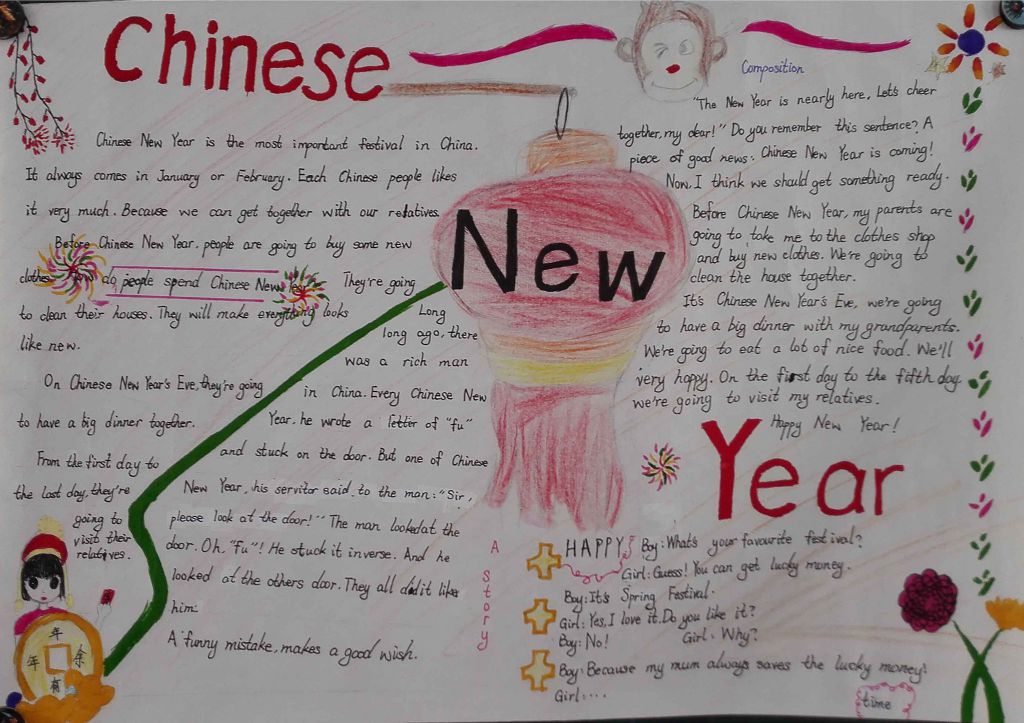 Chinese
New
Year
Chinese New Year is the most important festival in China.
It always comes in January or February. Each Chinese people likes
it very much. Because we can get together with our relatives.
Before Chinese New Year, people are going to buy some new
clothes.
How do people spend Chinese New Year?
They're going
to clean their houses. They will make everything looks
like new.
On Chinese New Year's Eve, they're going
to have a big dinner together.
From the first day to
the last day, they're
going to
visit their
relatives.
年
年
有
余
A story
Long
long ago, there
was a rich man
in China. Every Chinese New
Year, he wrote a letter of "fu"
and stuck on the door. But one of Chinese
New Year, his servitor said to the man: "Sir,
please look at the door!" The man lookedat the
door. Oh. "fu"! He stuck it inverse. And he
looked at the others door. They all did it like
him.
A funny mistake, makes a good wish.
Composition
"The New Year is nearly here, Let's cheer
together, my dear!" Do you remember this sentence? A
piece of good news: Chinese New Year is coming!
Now, I think we should get something ready.
Before Chinese New Year, my parents are
going to take me to the clothes shop
and buy new clothes. We're going to
clean the house together.
It's Chinese New Year's Eve, we're going
to have a big dinner with my grandparents.
We're going to eat a lot of nice food. We'll
very happy. On the first day to the fifth day,
we're going to visit my relatives.
Happy New Year!
HAPPY
Boy: What's your favourite festival?
Girl: Guess! You can get lucky money.
Boy: It's Spring Festival.
Girl: Yes, I love it. Do you like it?
Boy: No! Girl: Why?
Boy: Because my mum always saves the lucky money!
Girl: ...
time